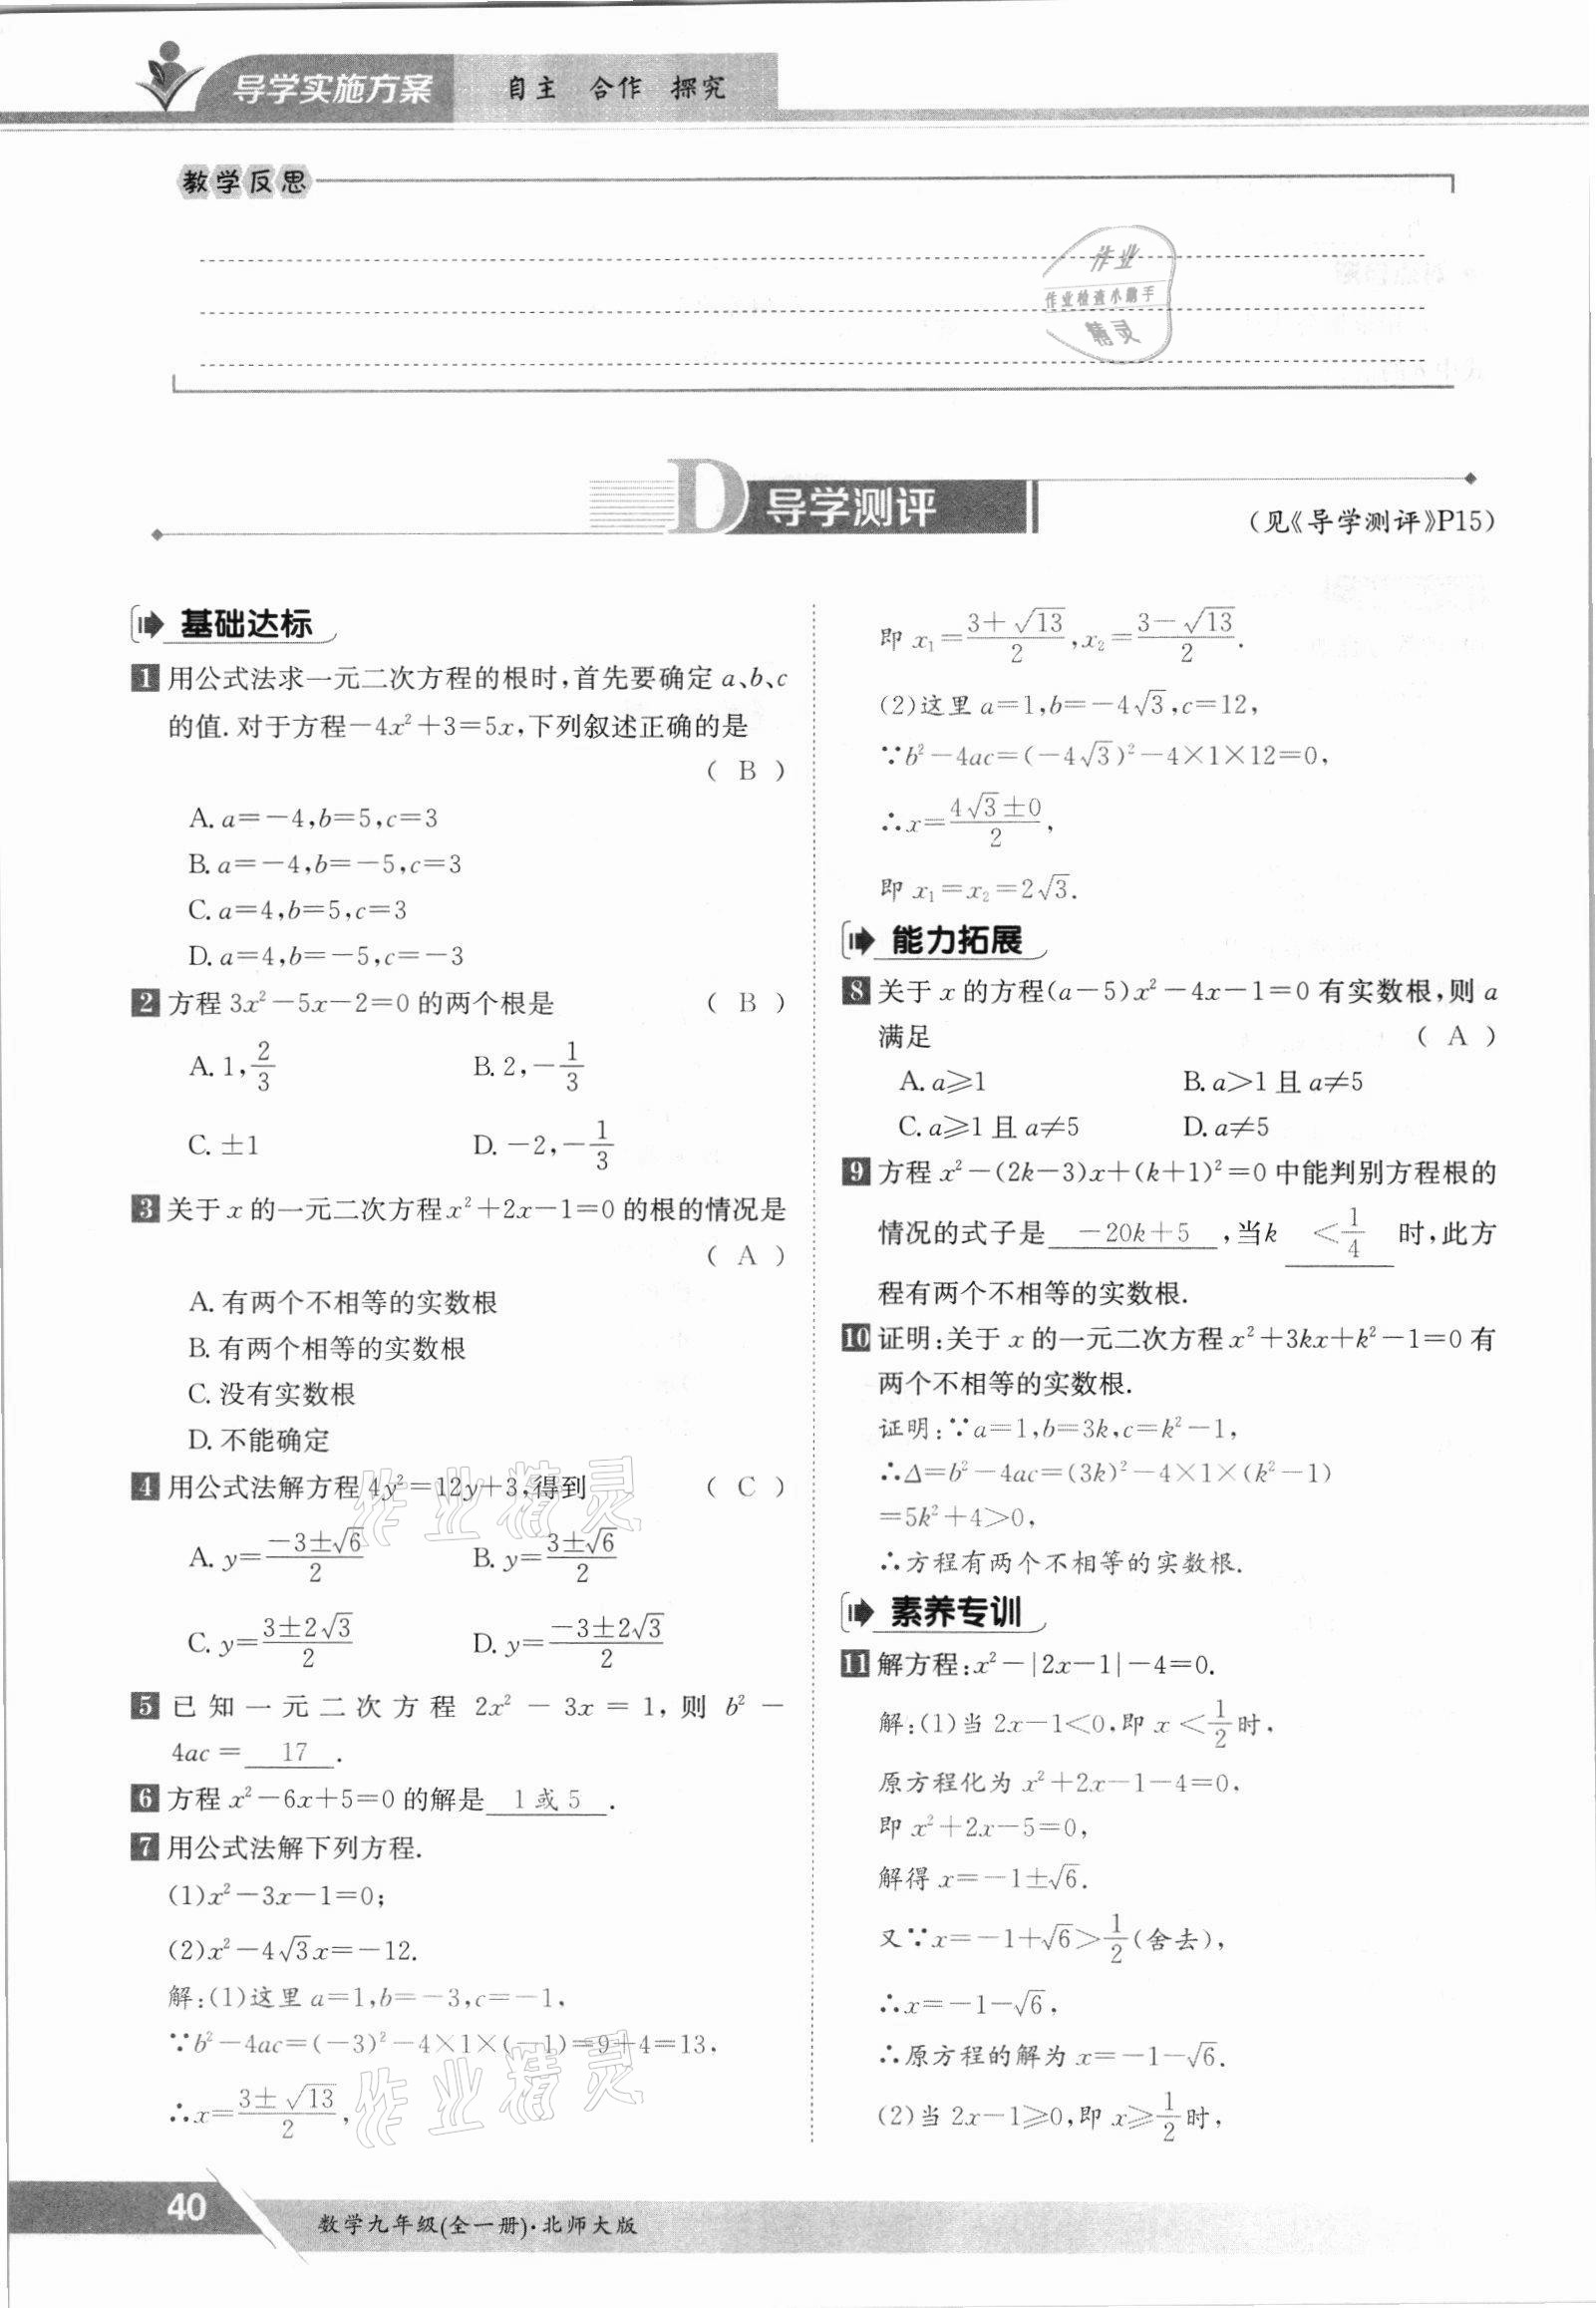 导学实施方案 自主 合作 探究
教学反思
作业
作业检查小助手
精灵
D 导学测评
(见《导学测评》P15)
基础达标
1 用公式法求一元二次方程的根时,首先要确定 a、b、c
的值. 对于方程-4x²+3=5x,下列叙述正确的是
( B )
A. a=-4,b=5,c=3
B. a=-4,b=-5,c=3
C. a=4,b=5,c=3
D. a=4,b=-5,c=-3
2 方程 3x²-5x-2=0 的两个根是 ( B )
A. 1,2/3 B. 2,-1/3
C. ±1 D. -2,-1/3
3 关于 x 的一元二次方程 x²+2x-1=0 的根的情况是
( A )
A. 有两个不相等的实数根
B. 有两个相等的实数根
C. 没有实数根
D. 不能确定
4 用公式法解方程 4y²=12y+3,得到 ( C )
A. y=(-3±√6)/2 B. y=(3±√6)/2
C. y=(3±2√3)/2 D. y=(-3±2√3)/2
5 已知一元二次方程 2x² - 3x = 1, 则 b² -
4ac = 17 .
6 方程 x²-6x+5=0 的解是 1 或 5 .
7 用公式法解下列方程.
(1)x²-3x-1=0;
(2)x²-4√3x=-12.
解:(1)这里 a=1,b=-3,c=-1,
∵b²-4ac=(-3)²-4×1×(-1)=9+4=13,
∴x=(3±√13)/2,
即 x₁=(3+√13)/2,x₂=(3-√13)/2.
(2)这里 a=1,b=-4√3,c=12,
∵b²-4ac=(-4√3)²-4×1×12=0,
∴x=(4√3±0)/2,
即 x₁=x₂=2√3.
能力拓展
8 关于 x 的方程(a-5)x²-4x-1=0 有实数根,则 a
满足 ( A )
A. a⩾1 B. a>1 且 a≠5
C. a⩾1 且 a≠5 D. a≠5
9 方程 x²-(2k-3)x+(k+1)²=0 中能判别方程根的
情况的式子是 -20k+5 ,当k <1/4 时,此方
程有两个不相等的实数根.
10 证明:关于 x 的一元二次方程 x²+3kx+k²-1=0 有
两个不相等的实数根.
证明:∵a=1,b=3k,c=k²-1,
∴Δ=b²-4ac=(3k)²-4×1×(k²-1)
=5k²+4>0,
∴方程有两个不相等的实数根.
素养专训
11 解方程:x²-|2x-1|-4=0.
解:(1)当 2x-1<0,即 x<1/2时,
原方程化为 x²+2x-1-4=0,
即 x²+2x-5=0,
解得 x=-1±√6.
又∵x=-1+√6>1/2(舍去),
∴x=-1-√6,
∴原方程的解为 x=-1-√6.
(2)当 2x-1⩾0,即 x⩾1/2时,
作业精灵
作业精灵
40
数学九年级(全一册)·北师大版